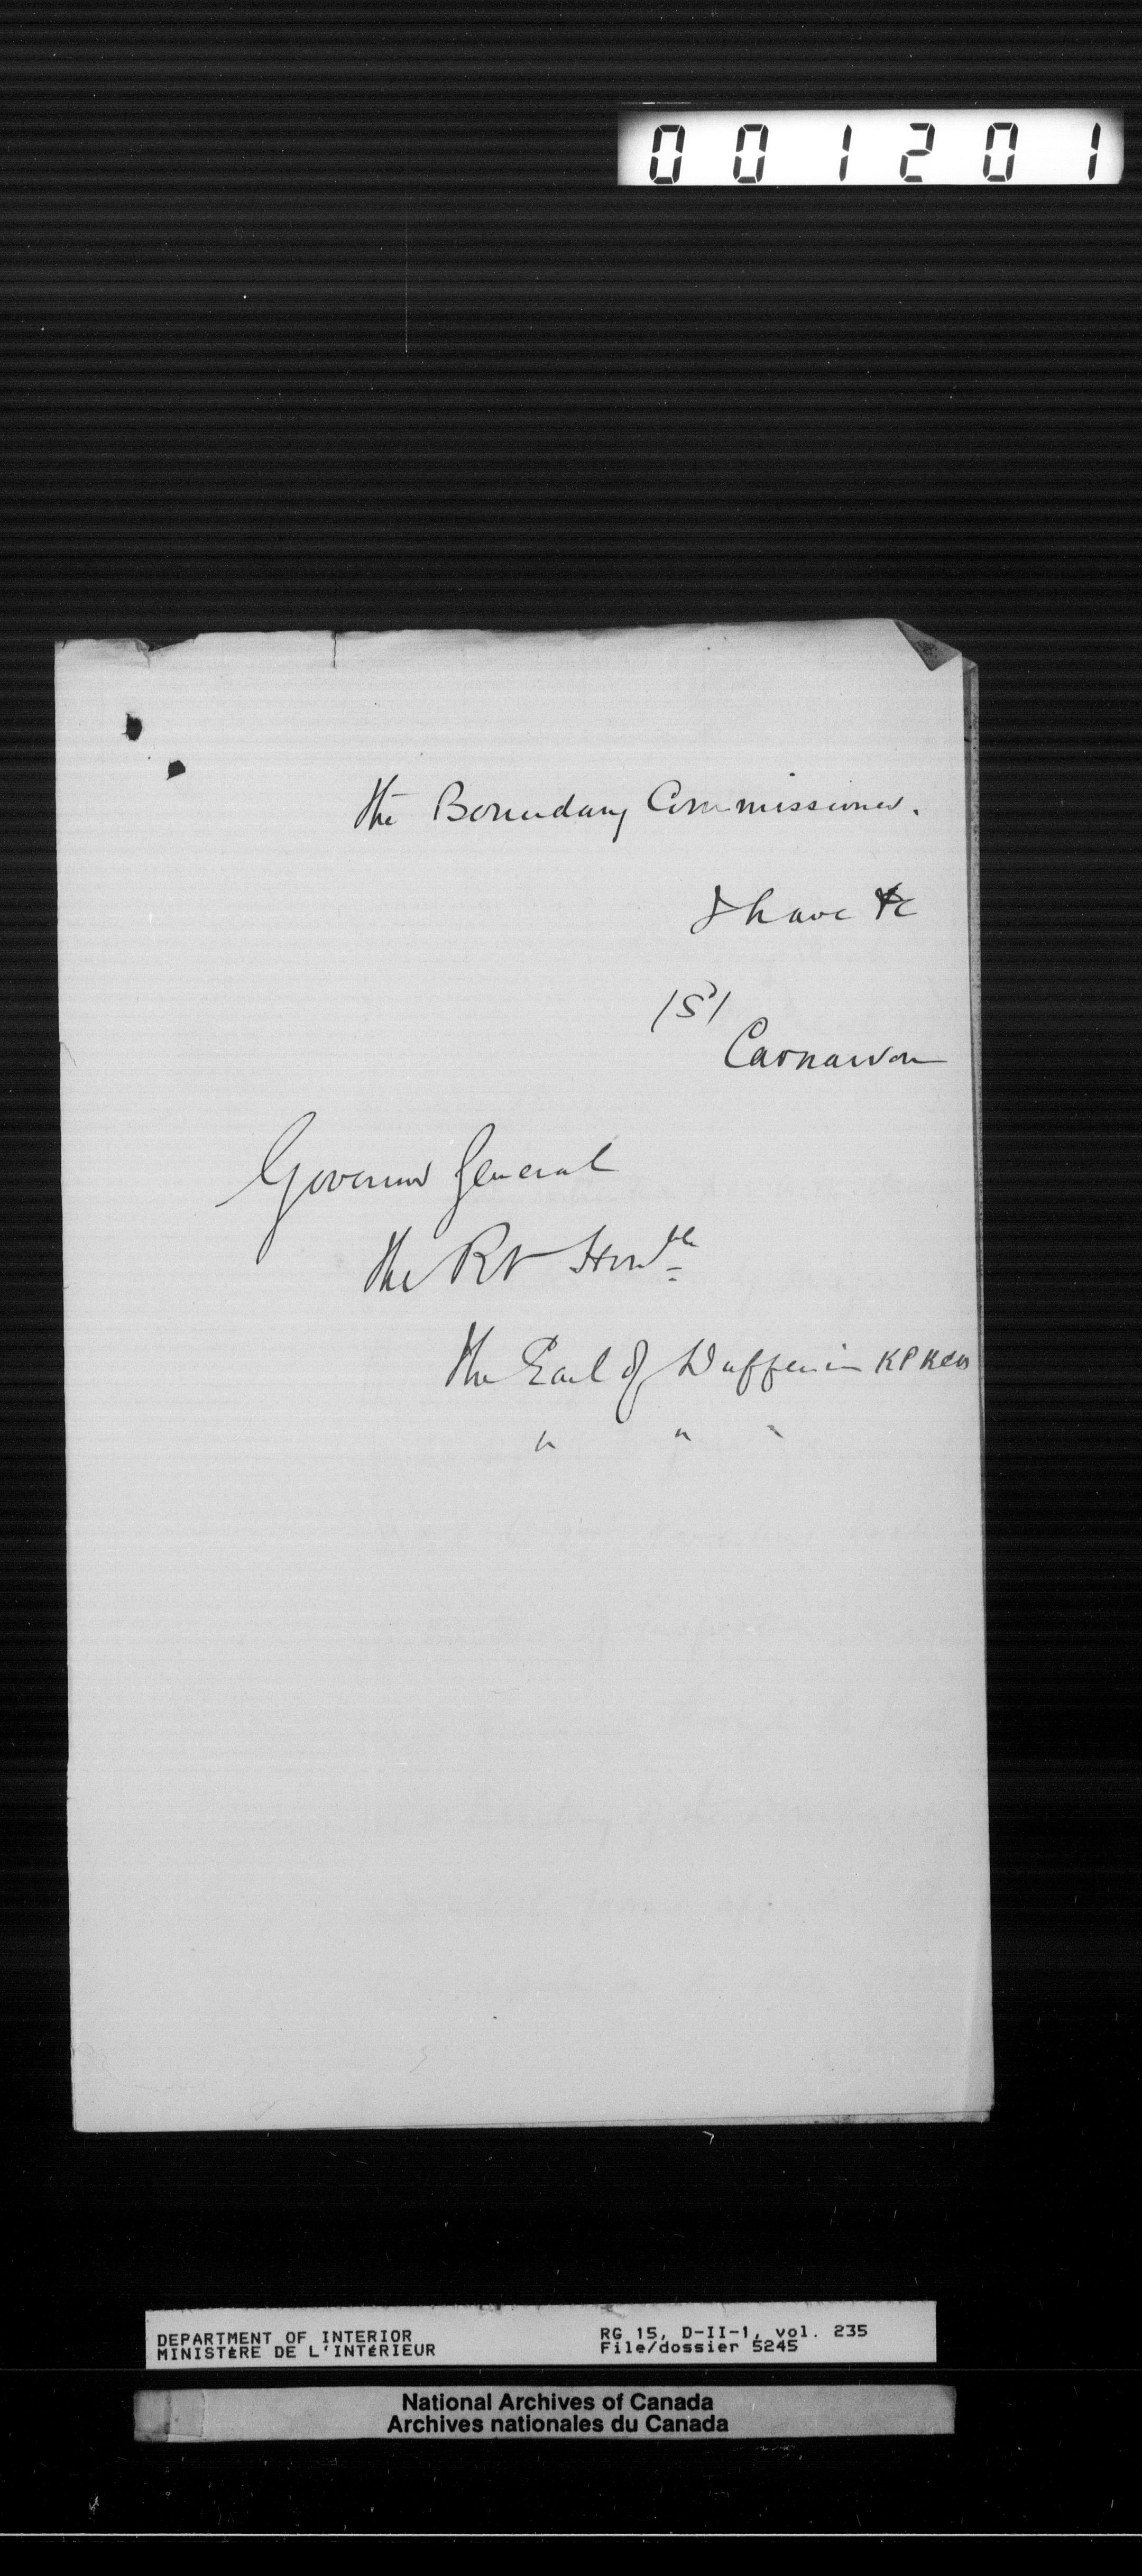 001201
the Boundary Commissioner.
I have &c
/S/
Carnarvon
Governor General
The Rt Honble
The Earl of Dufferin KP KCB
" " "
DEPARTMENT OF INTERIOR
MINISTÈRE DE L'INTÉRIEUR
RG 15, D-II-1, vol. 235
File/dossier 5245
National Archives of Canada
Archives nationales du Canada